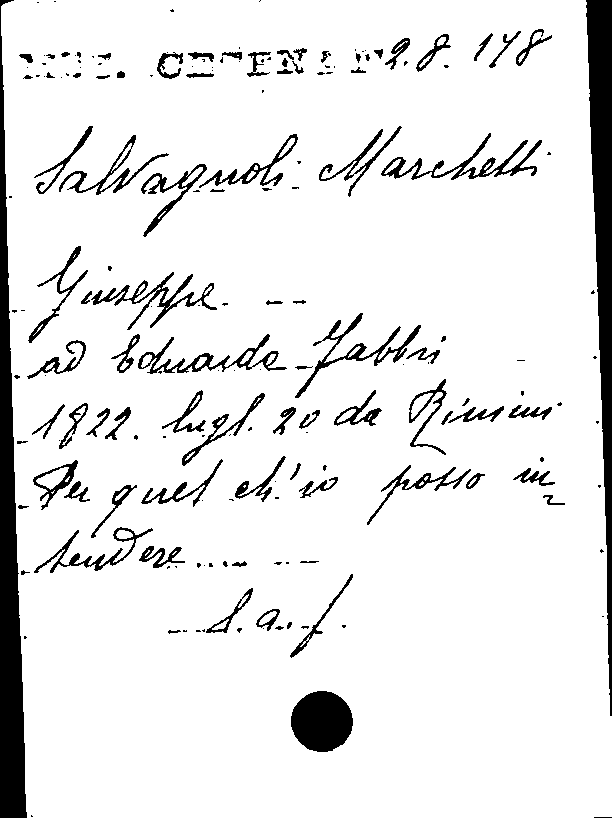 MSS. CESENAT 2.8.178
Salvagnoli Marchetti
Giuseppe
ad Eduardo Fabbri
1822. lugl. 20 da Rimini
Per quel ch'io posso in=
tendere....
L. a. f.